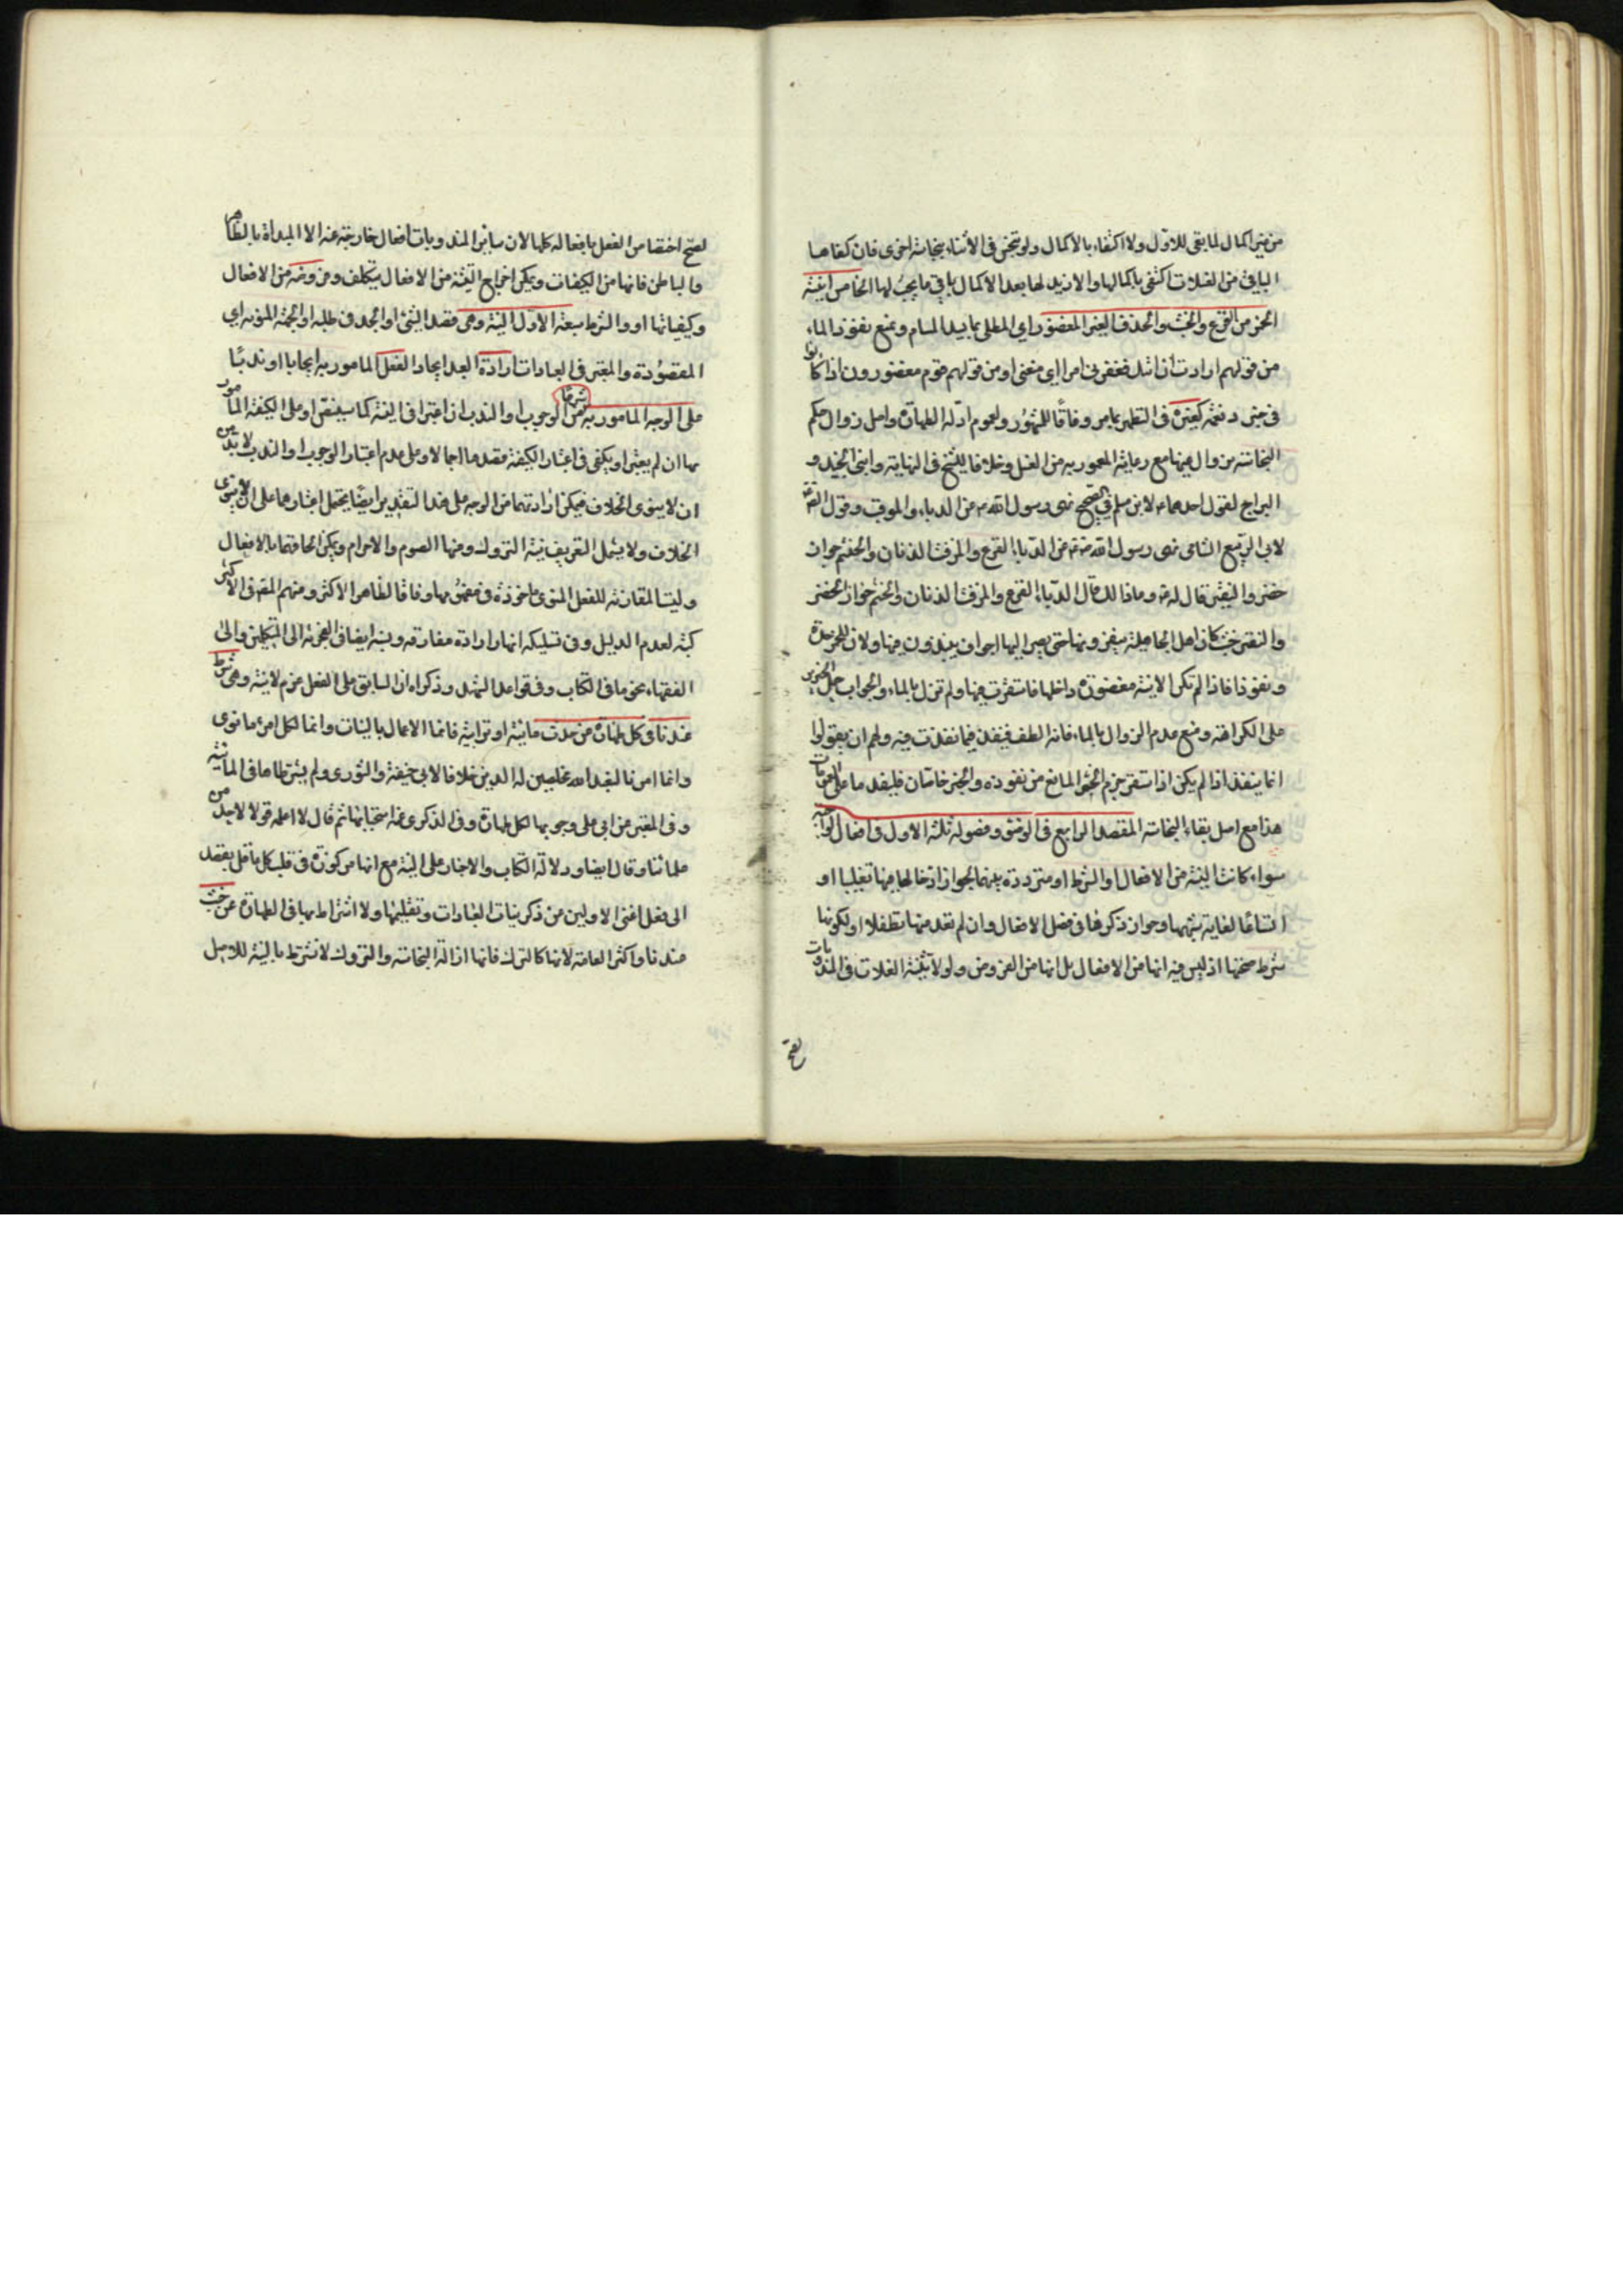 من غير اكمال لما بقى للاول ولا اكتفاء بالاكمال ولو تنجس فى الاثناء بنجاسة اخرى فان كفاها
الباقى من الغسلات اكتفى باكمالها والا زيد لها بعد الاكمال باقى ما يجب لها الخامس انية
الخمر من القرع والخشب والخذف الغير المغضور اى المطلى بما يسد المسام ويمنع نفوذ الماء
من قولهم ارادت ان فغضرنى امر اى منعنى او من قولهم قوم مغضورون اذا كانوا
فى خير ونعمة كغيره فى التطهير بما مر وفاقا للمشهور ولعموم ادلة الطهارة واصل زوال حكم
النجاسة بزوال عينها مع رعاية المامور به من الغسل وخلافا للشيخ فى النهاية وابنى الجنيد و
البراج لقول احدهما لابن مسلم فى الصحيح نهى رسول الله عن الدباء والمزفت وقول
لابى الربيع الشامى نهى رسول الله عن الدبا القرع والمزفت الدنان والحنتم جرات
خضر والنقير قال له وما ذالك قال الدبا القرع والمزفت الدنان والحنتم جرار الخضر
والنقير خشب كان اهل الجاهلية ينقرونها حتى يصير لها اجواف ينبذون فيها ولان للخمر حدة
ونفوذا فاذا لم تكن الانية مغضورة داخلها فاستقرت فيها ولم تزل بالماء والجواب حمل الخبرين
على الكراهة ومنع عدم الزوال بالماء فانه الطف فينفذ فيما نفذت فيه ولهم ان يقولوا
انما ينفذ اذا لم يكن اذا استقر جرم الخمر المانع من نفوذه والخبر خاصان
هذا مع اصل بقاء النجاسة المقصد الرابع فى الوضوء وفصوله ثلثة الاول فى افعاله
سواء كانت النية من الافعال او الشرط او مترددة بينهما لجواز ادخالها فيها تغليبا او
اتساعا لغاية شبهها وجواز ذكرها فى فصل الافعال وان لم تعد منها تطفلا او لكونها
شرط صحتها اذ ليس فيه انها من الافعال بل انها من الفروض ولولا تثنية الغسلات فى المندوبات
لصح
لصح اختصاص الفعل بافعاله كلها لان ساير المندوبات افعال خارجة عنه الا البداة بالظاهر
والباطن فانها من الكيفيات ويمكن اخراج النية من الافعال بتكلف وفروضه من الافعال
وكيفياتها او والشرط سبعة الاول النية وهى قصد الشئ او الجد فى طلبه او الجهة المنوية اى
المقصودة والمعتبر فى العبادات ارادة العبد ايجاد الفعل المامور به ايجابا او ندبا
على الوجه المامور به شرعا من الوجوب او الندب ان اعتبرا فى النية كما سينص او على الكيفية المامور
بها ان لم يعتبرا ويكفى فى اعتبار الكيفية قصدها اجمالا وعلى عدم اعتبار الوجوب او الندب لا بد من
ان لا ينوى الخلاف فيمكن ارادتهما من الوجه على هذا التقدير ايضا يحتمل اعتبارهما على ان لا ينوى
الخلاف ولا يشمل التعريف نية التروك ومنها الصوم والاحرام ويمكن الحاقهما بالافعال
وليست المقارنة للفعل المنوى ماخوذة فى مفهومها وفاقا لظاهر الاكثر ومنهم المص فى اكثر
كتبه لعدم الدليل وفى تسليكه انها ارادة مقارنة ونسبه ايضا فى الفخرية الى المتكلمين والى
الفقهاء نحو ما فى الكتاب وفى قواعد الشهيد وذكرا ان السابق على الفعل عزم لا نية وهى شرط
عندنا فى كل طهارة من حدث مائية او ترابية فانما الاعمال بالنيات وانما لكل امرئ ما نوى
وانما امرنا لنعبد الله مخلصين له الدين خلافا لابى حنيفة والثورى ولم يشترطاها فى المائية
وفى المعتبر عن ابى على وجوبها لكل طهارة وفى الذكرى عنه استحبابها ثم قال لا اعلم قولا لاحد من
علمائنا وقال ايضا ودلالة الكتاب والاخبار على النية مع انها مركوزة فى قلب كل عاقل يقصد
الى فعل اغنى الاولين من ذكر نيات العبادات وتعليمها ولا اشتراط بها فى الطهارة عن خبث
عندنا واكثر العامة لانها كالترك فانها ازالة النجاسة والتروك لا تشترط بالنية للاصل